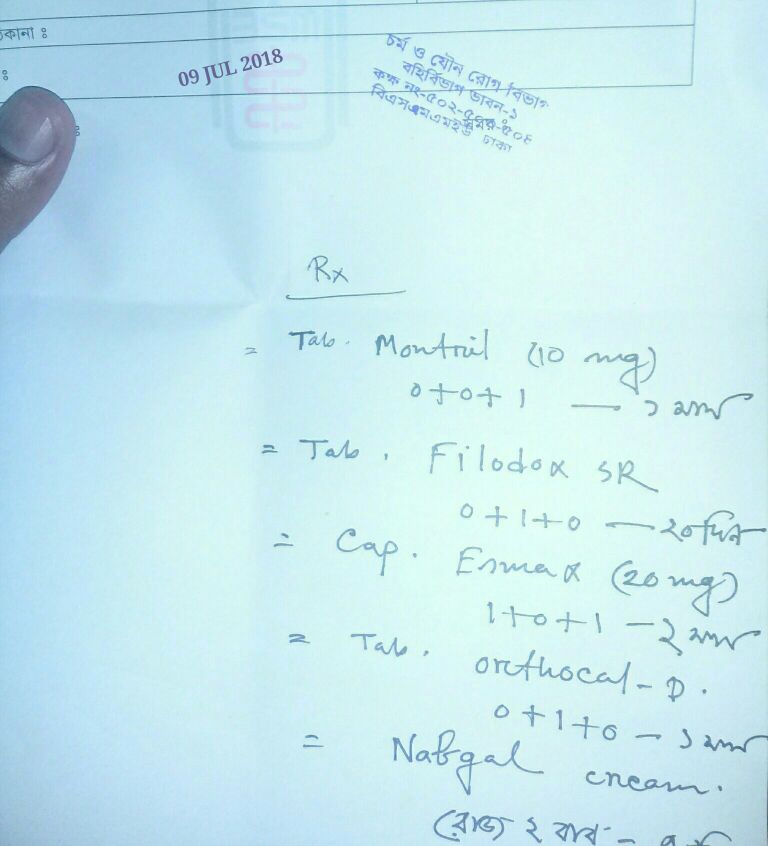 ঠিকানা ঃ
ঃ
09 JUL 2018
চর্ম ও যৌন রোগ বিভাগ
বহির্বিভাগ ভবন-১
কক্ষ নং-৫০২-৫০৫
ঢাকা
Rx
= Tab. Montril (10 mg)
0+0+1 — ১ মাস
= Tab. Filodox SR
0+1+0 — ২০ দিন
= Cap. Esmax (20 mg)
1+0+1 — ২ মাস
= Tab. orthocal-D.
0+1+0 — ১ মাস
= Nabgal cream.
রোজ ২ বার -